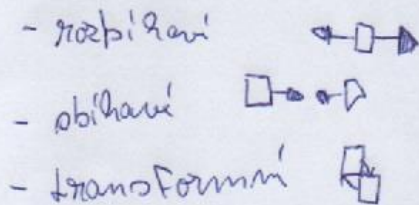 - rozbíhaví
- sbíhavé
- transformní